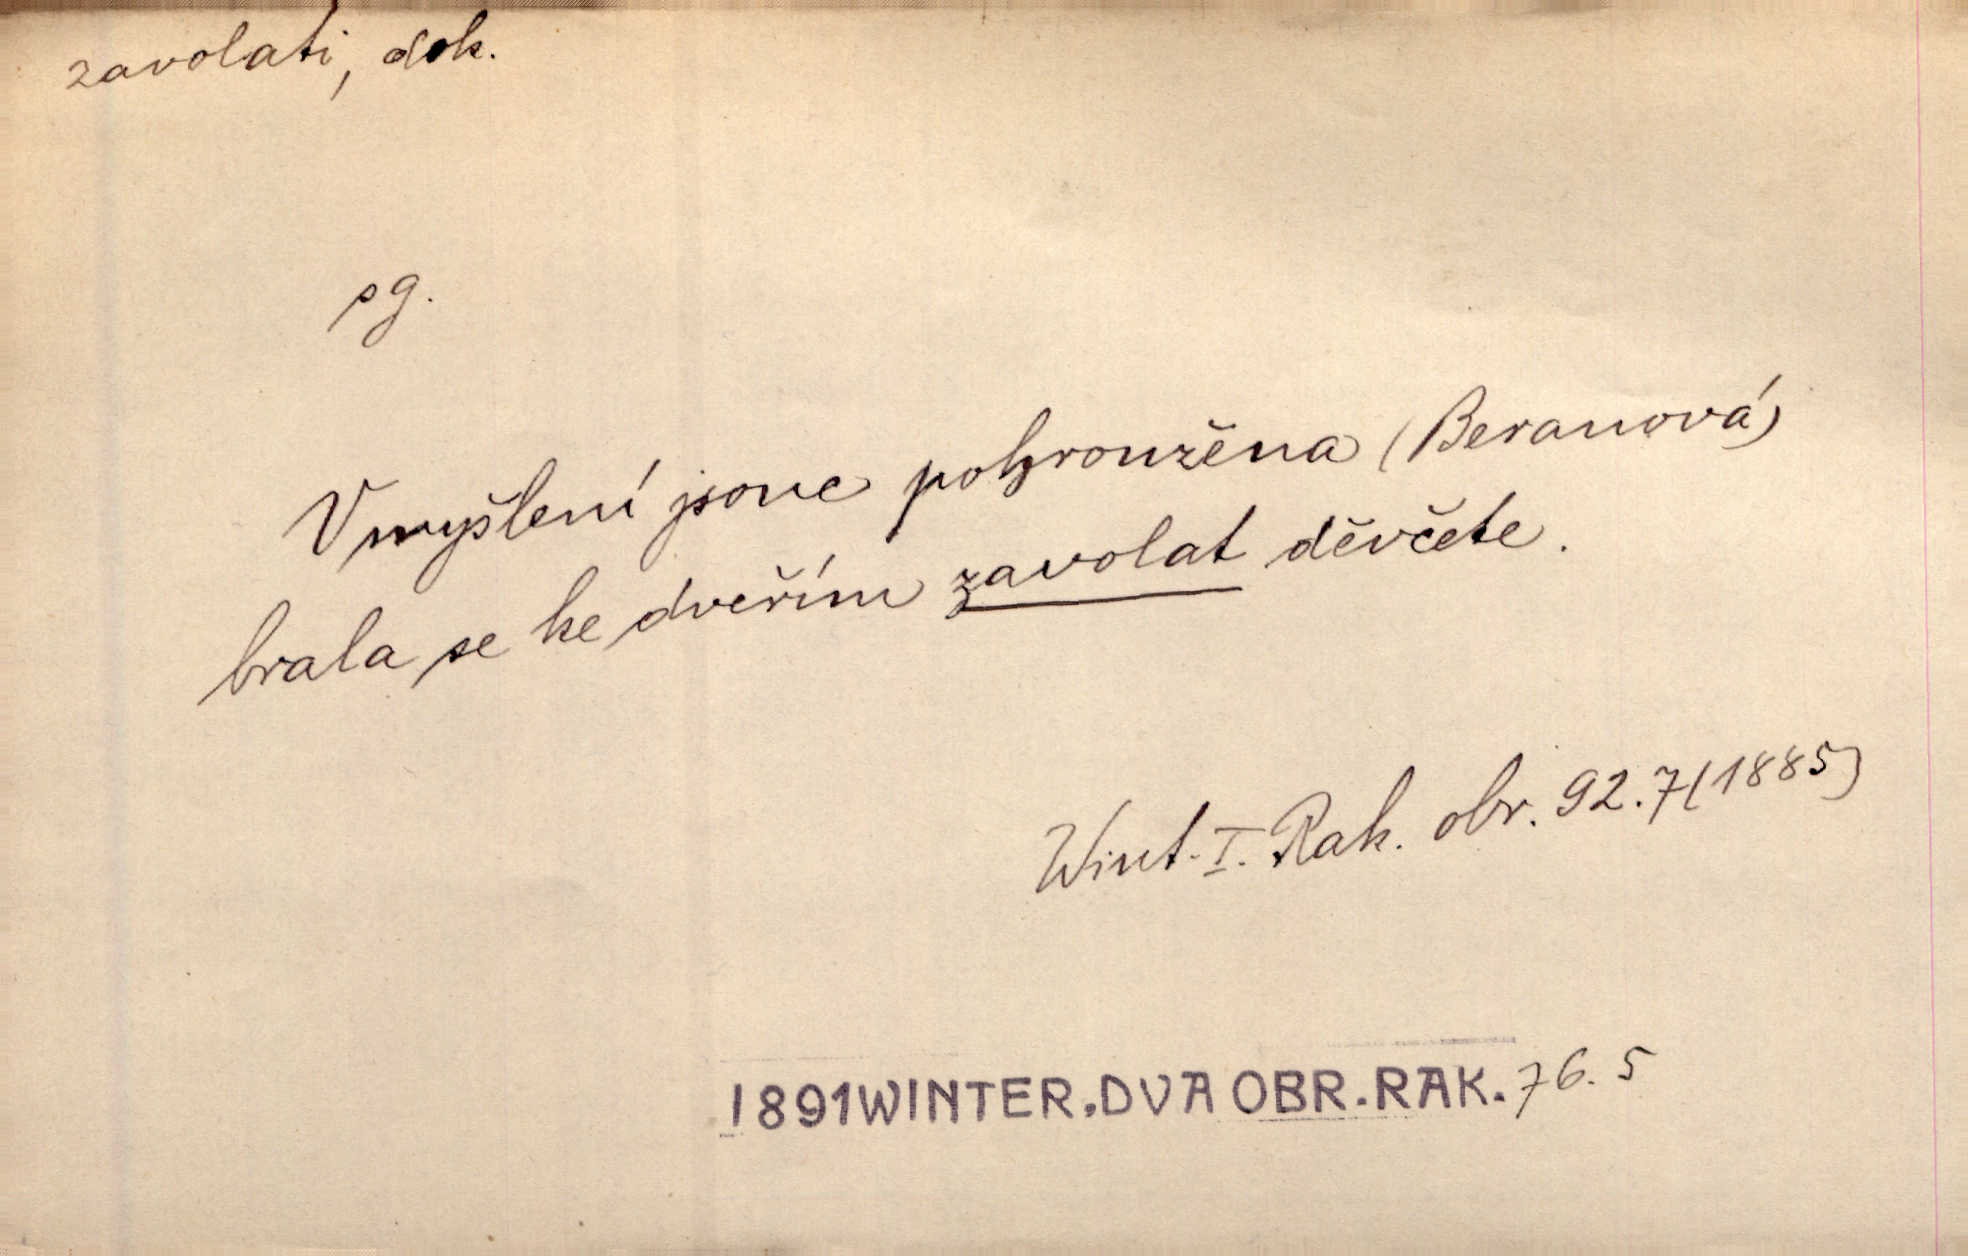 zavolati, dok.
sg.
V myšlení jsouc pohroužena (Beranová)
brala se ke dveřím zavolat děvčete.
Wint. I. Rak. obr. 92.7 (1885)
1891 WINTER. DVA OBR. RAK. 76. 5